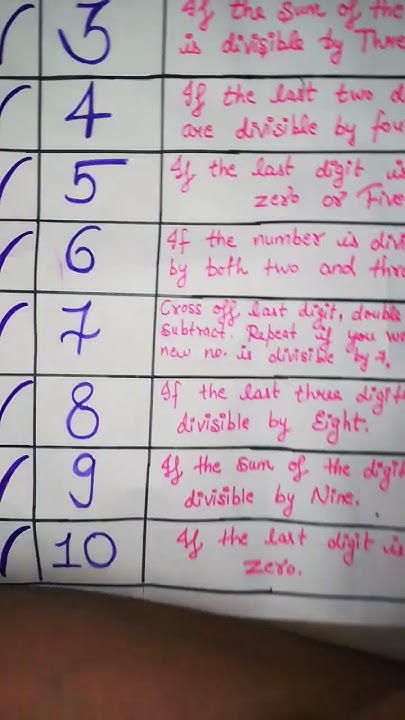 3
If the sum of the
is divisible by Three
4
If the last two d
are divisible by fou
5
If the last digit is
zero or Five
6
If the number is divi
by both two and thre
7
Cross off last digit, double
subtract. Repeat if you wa
new no. is divisible by 7.
8
If the last three digit
divisible by Eight.
9
If the sum of the digit
divisible by Nine.
10
If the last digit is
zero.